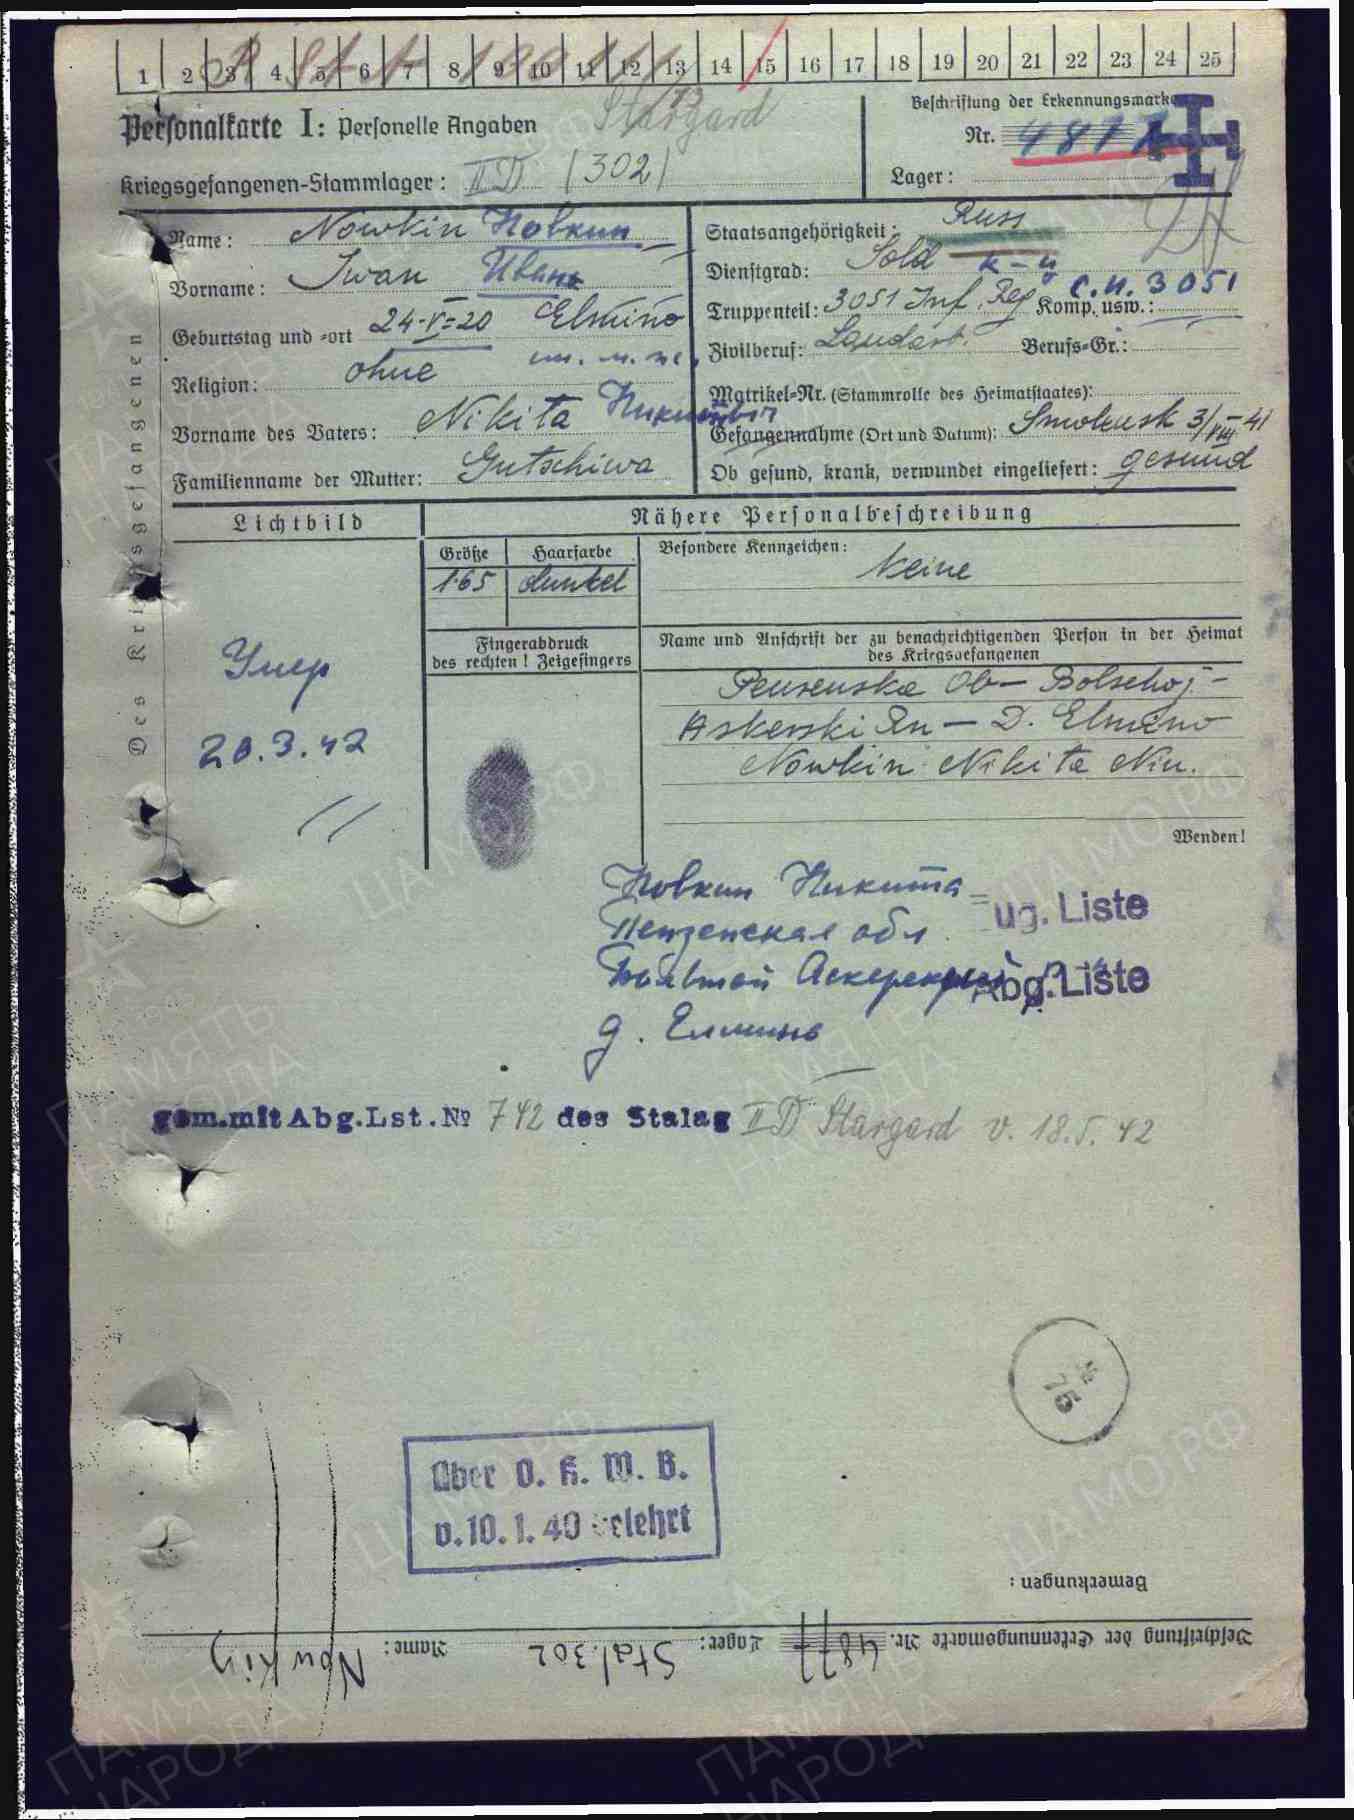 1 2 3 4 5 6 7 8 9 10 11 12 13 14 15 16 17 18 19 20 21 22 23 24 25
Stargard
Personalkarte I: Personelle Angaben
Beschriftung der Erkennungsmarke
Nr. 4877
Kriegsgefangenen-Stammlager: II D (302)
Lager:
Des Kriegsgefangenen
Name: Nowkin Новкин
Vorname: Iwan Иван
Geburtstag und =ort 24-V-20 Elmino
Religion: ohne
Vorname des Vaters: Nikita
Familienname der Mutter: Gutschiwa
Staatsangehörigkeit: Russ
Dienstgrad: Sold
Truppenteil: 3051 Inf. Reg Komp. usw.: с.п. 3051
Zivilberuf: Landarb. Berufs=Gr.:
Matrikel=Nr. (Stammrolle des Heimatstaates):
Gefangennahme (Ort und Datum): Smolensk 3/VIII-41
Ob gesund, krank, verwundet eingeliefert: gesund
Lichtbild
Nähere Personalbeschreibung
Größe Haarfarbe
1.65 dunkel
Besondere Kennzeichen: Keine
Fingerabdruck
des rechten! Zeigefingers
Name und Anschrift der zu benachrichtigenden Person in der Heimat
des Kriegsgefangenen
Pensenska Ob- Bolschoj-
Askerski Rn - D. Elmino
Nowkin Nikita Nik.
Умер
20.3.42
Wenden!
Новкин Никита
Пензенская обл
ug. Liste
Большой
Abg. Liste
д. Елмино
gem. mit Abg. Lst. № 742 des Stalag II D Stargard v. 18.5.42
75
Über O. K. W. B.
v. 10. 1. 40 belehrt
Bemerkungen:
Beschriftung der Erkennungsmarke Nr. 4877 Lager: Stal. 302 Name: Nowkin
ПАМЯТЬ
НАРОДА
ЦАМО.РФ